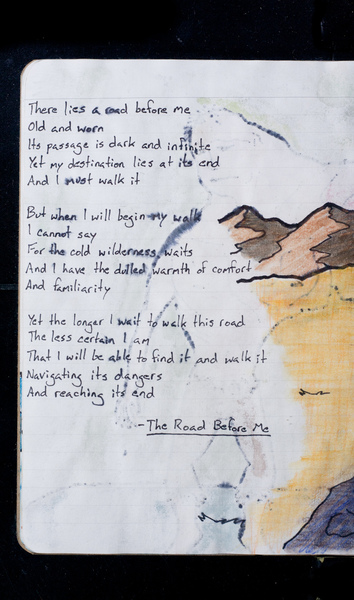 There lies a road before me
Old and worn
Its passage is dark and infinite
Yet my destination lies at its end
And I must walk it
But when I will begin my walk
I cannot say
For the cold wilderness waits
And I have the dulled warmth of comfort
And familiarity
Yet the longer I wait to walk this road
The less certain I am
That I will be able to find it and walk it
Navigating its dangers
And reaching its end
- The Road Before Me